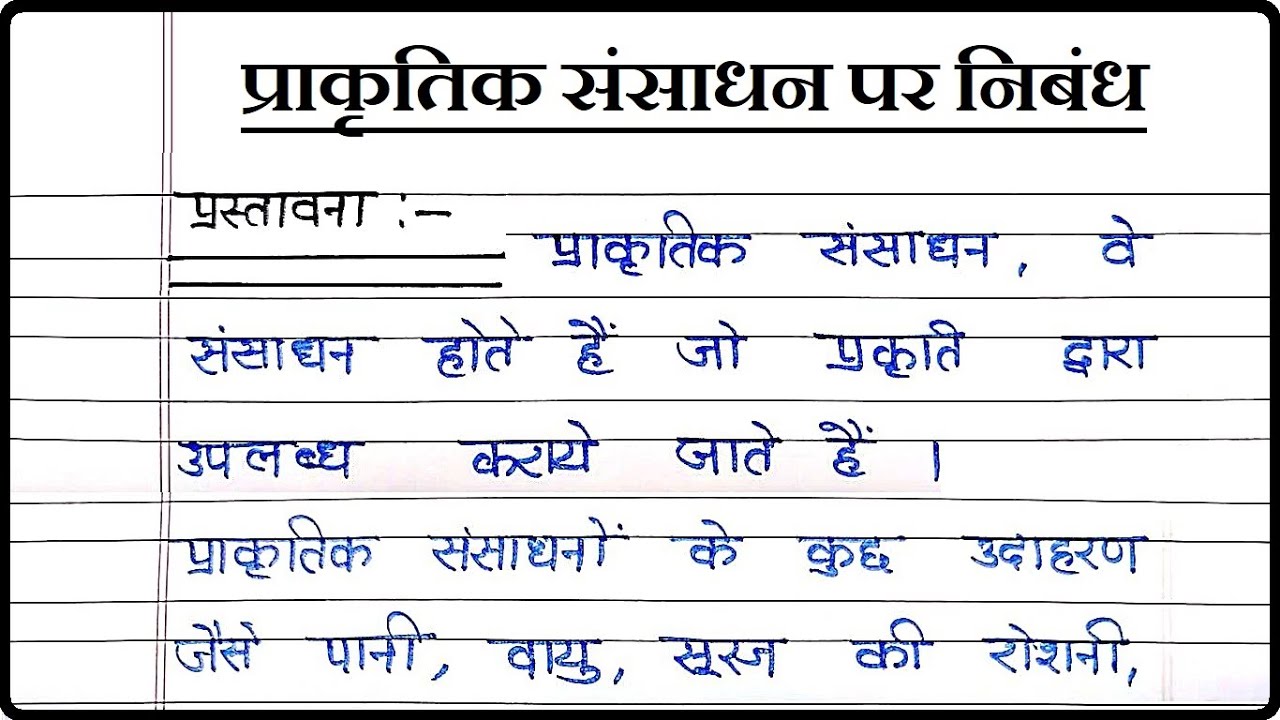 प्राकृतिक संसाधन पर निबंध
प्रस्तावना :-
प्राकृतिक संसाधन, वे
संसाधन होते हैं जो प्रकृति द्वारा
उपलब्ध कराये जाते हैं ।
प्राकृतिक संसाधनों के कुछ उदाहरण
जैसे पानी, वायु, सूरज की रोशनी,